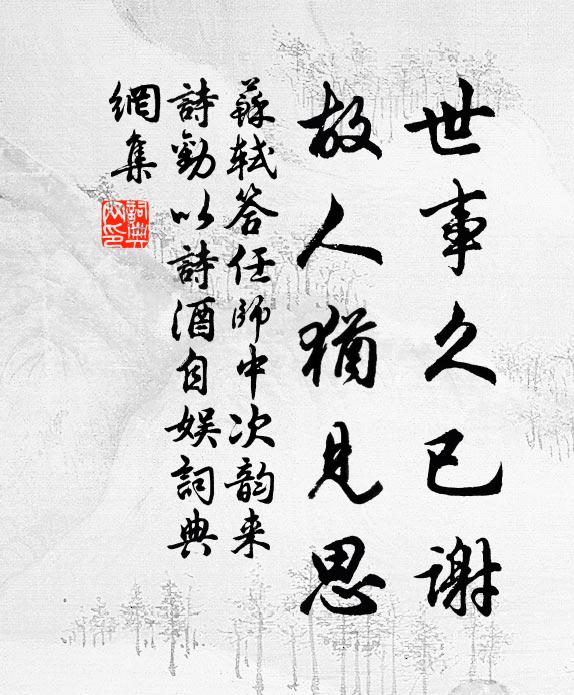 世事久已谢
故人猶見思
蘇軾答任師中次韵来
詩勸以詩酒自娱詞典
網集
詞典
網印